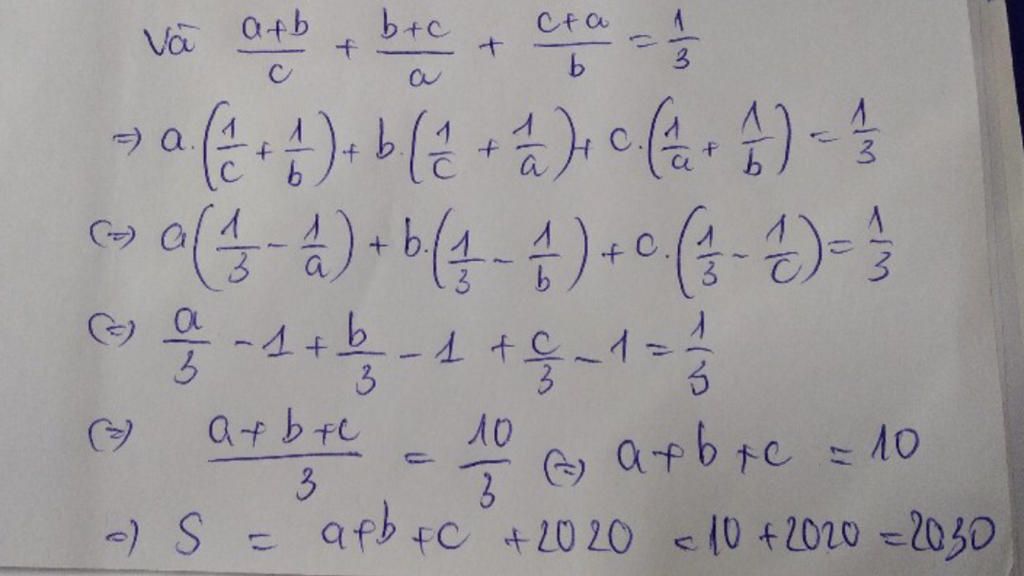 Và $\frac{a+b}{c} + \frac{b+c}{a} + \frac{c+a}{b} = \frac{1}{3}$
=) $a.\left(\frac{1}{c} + \frac{1}{b}\right) + b.\left(\frac{1}{c} + \frac{1}{a}\right) + c.\left(\frac{1}{a} + \frac{1}{b}\right) = \frac{1}{3}$
(=) $a\left(\frac{1}{3} - \frac{1}{a}\right) + b.\left(\frac{1}{3} - \frac{1}{b}\right) + c.\left(\frac{1}{3} - \frac{1}{c}\right) = \frac{1}{3}$
(=) $\frac{a}{3} - 1 + \frac{b}{3} - 1 + \frac{c}{3} - 1 = \frac{1}{3}$
(=) $\frac{a+b+c}{3} = \frac{10}{3}$ (=) $a+b+c = 10$
=) $S = a+b+c+2020 = 10+2020 = 2030$